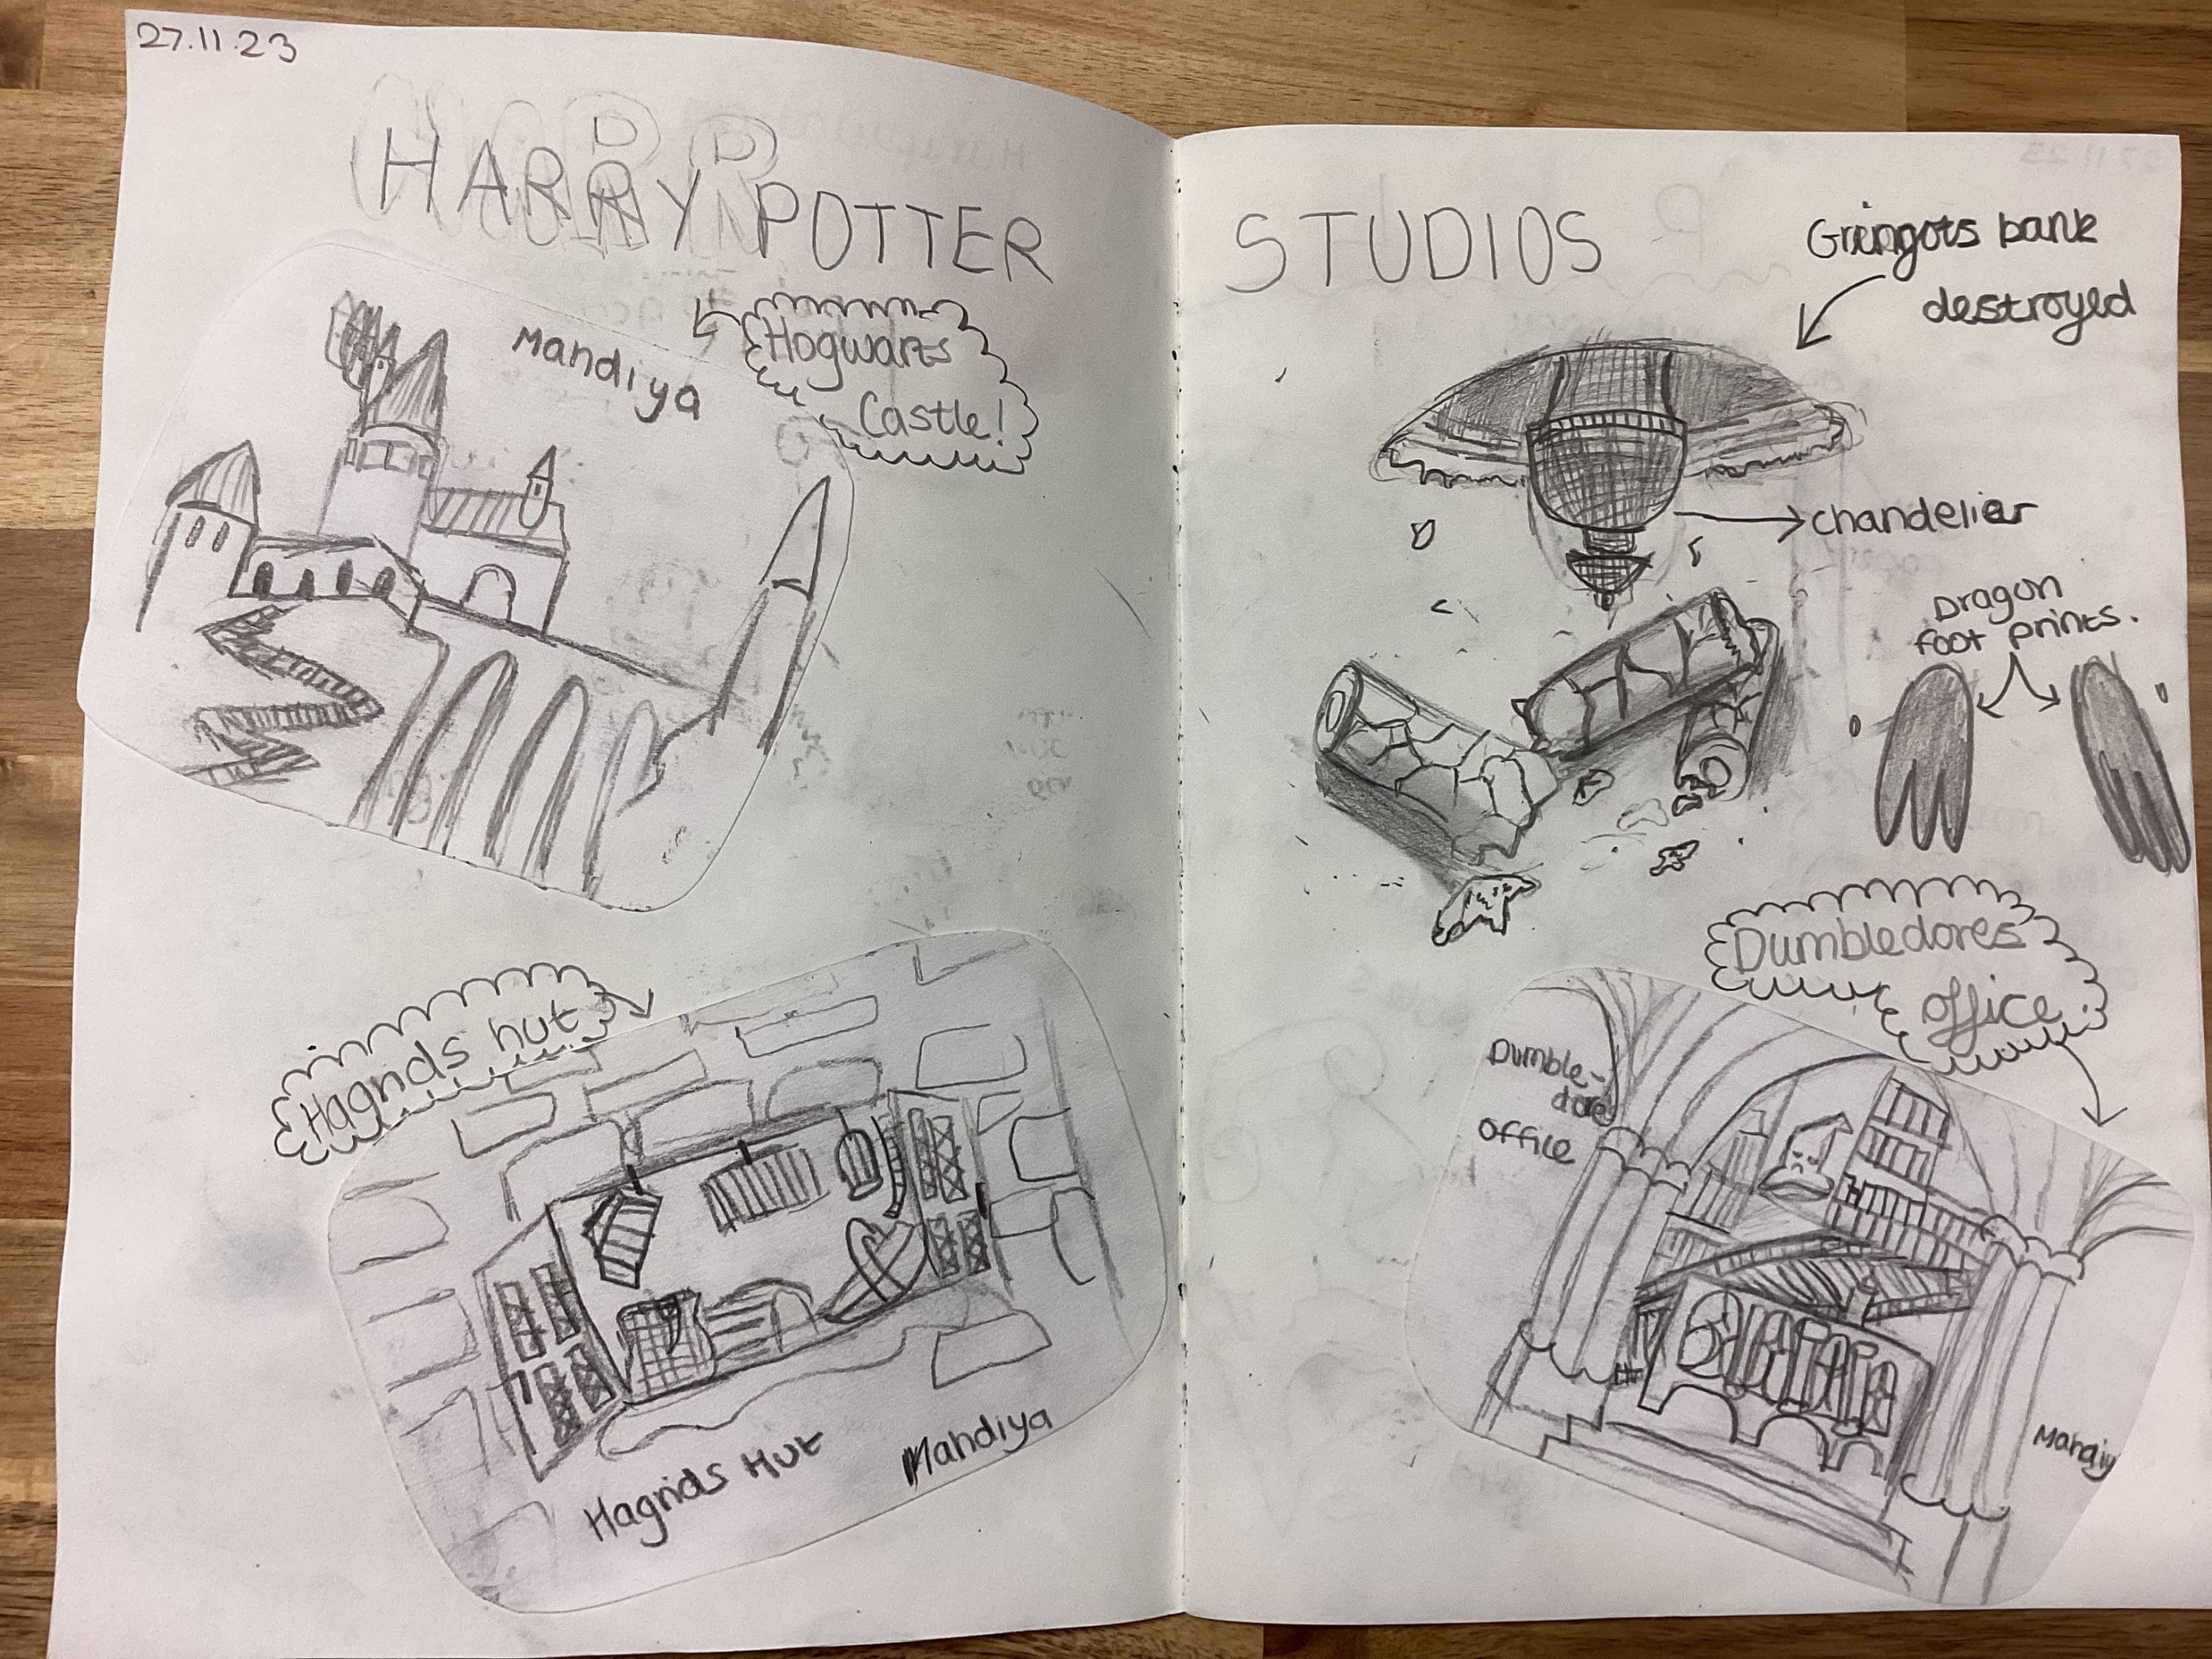 27.11.23
HARRY POTTER
STUDIOS
Mandiya
Hogwarts
Castle!
Gringots bank
destroyed
chandelier
Dragon
foot prints.
Hagrids hut
Hagrids Hut
Mandiya
Dumbledores
office.
Dumble-
dores
office
Mandiy